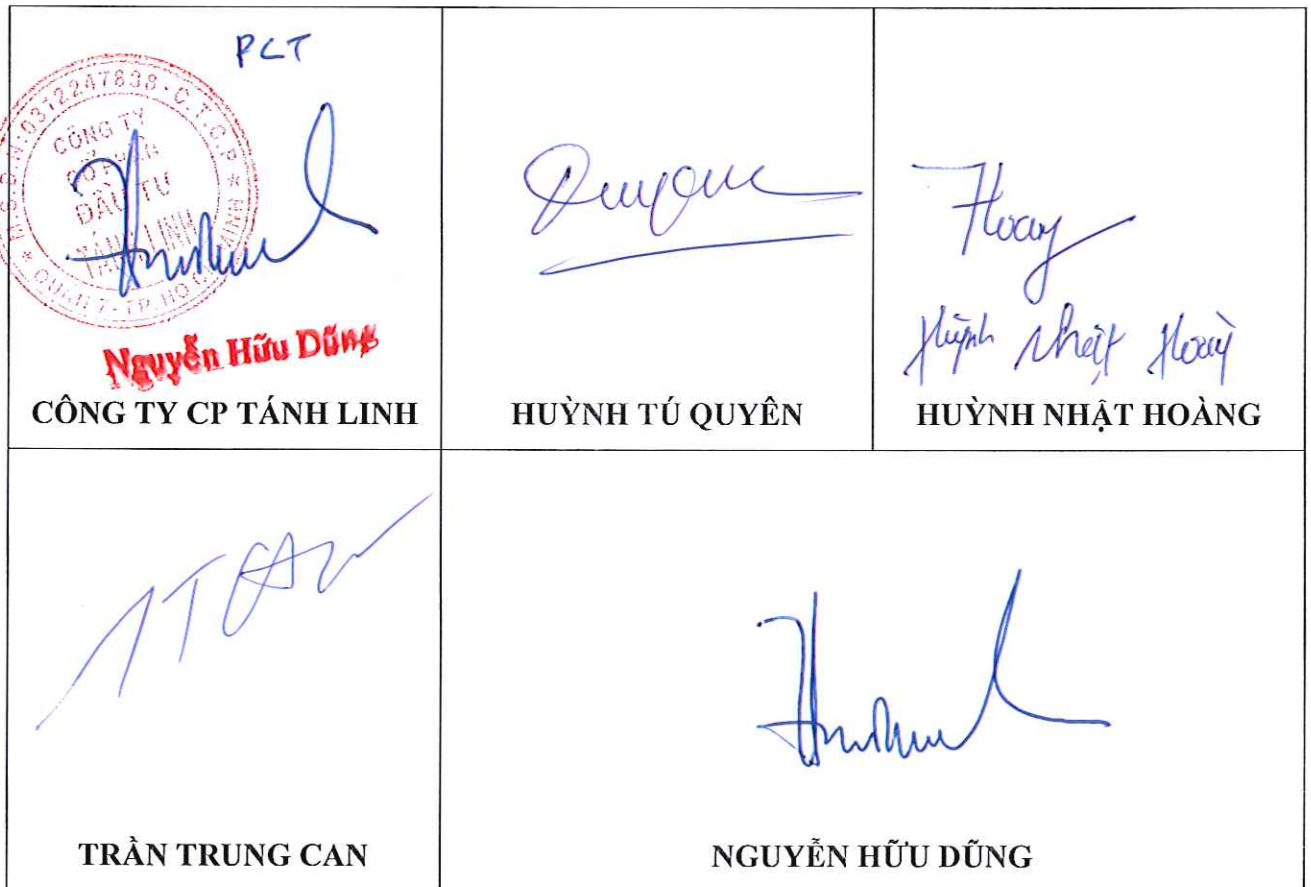 PCT
M.S.D.N:0312247838-C.T.C.P
CÔNG TY
CỔ PHẦN
ĐẦU TƯ
TÁNH LINH
QUẬN 7-TP.HỒ CHÍ MINH
Nguyễn Hữu Dũng
CÔNG TY CP TÁNH LINH
HUỲNH TÚ QUYÊN
Hoàng
Huỳnh Nhật Hoàng
HUỲNH NHẬT HOÀNG
TRẦN TRUNG CAN
NGUYỄN HỮU DŨNG